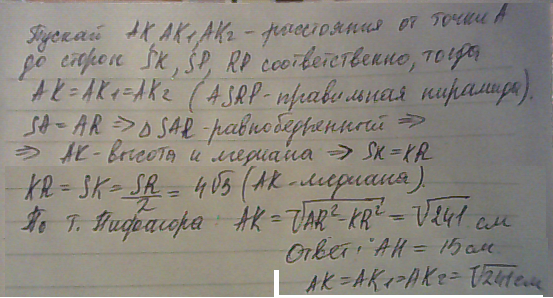 Пускай AK, AK₁, AK₂ - расстояния от точки A
до сторон SK, SP, RP соответственно, тогда
AK = AK₁ = AK₂ (ASRP - правильная пирамида).
SA = AR ⇒ △SAR - равнобедренный ⇒
⇒ AK - высота и медиана ⇒ SK = KR
KR = SK = SR/2 = 4√3 (AK - медиана).
По т. Пифагора: AK = √(AR² - KR²) = √241 см
Ответ: AH = 15 см
AK = AK₁ = AK₂ = √241 см